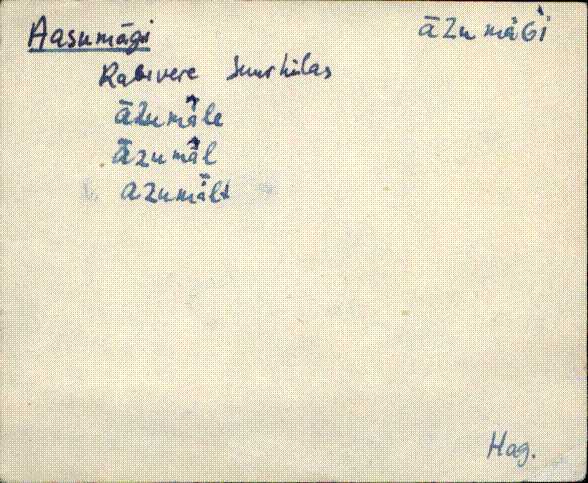 Aasumägi
āzu mäGi
Rabivere Suurkülas
āzumäle
āzumäl
azumält
Hag.